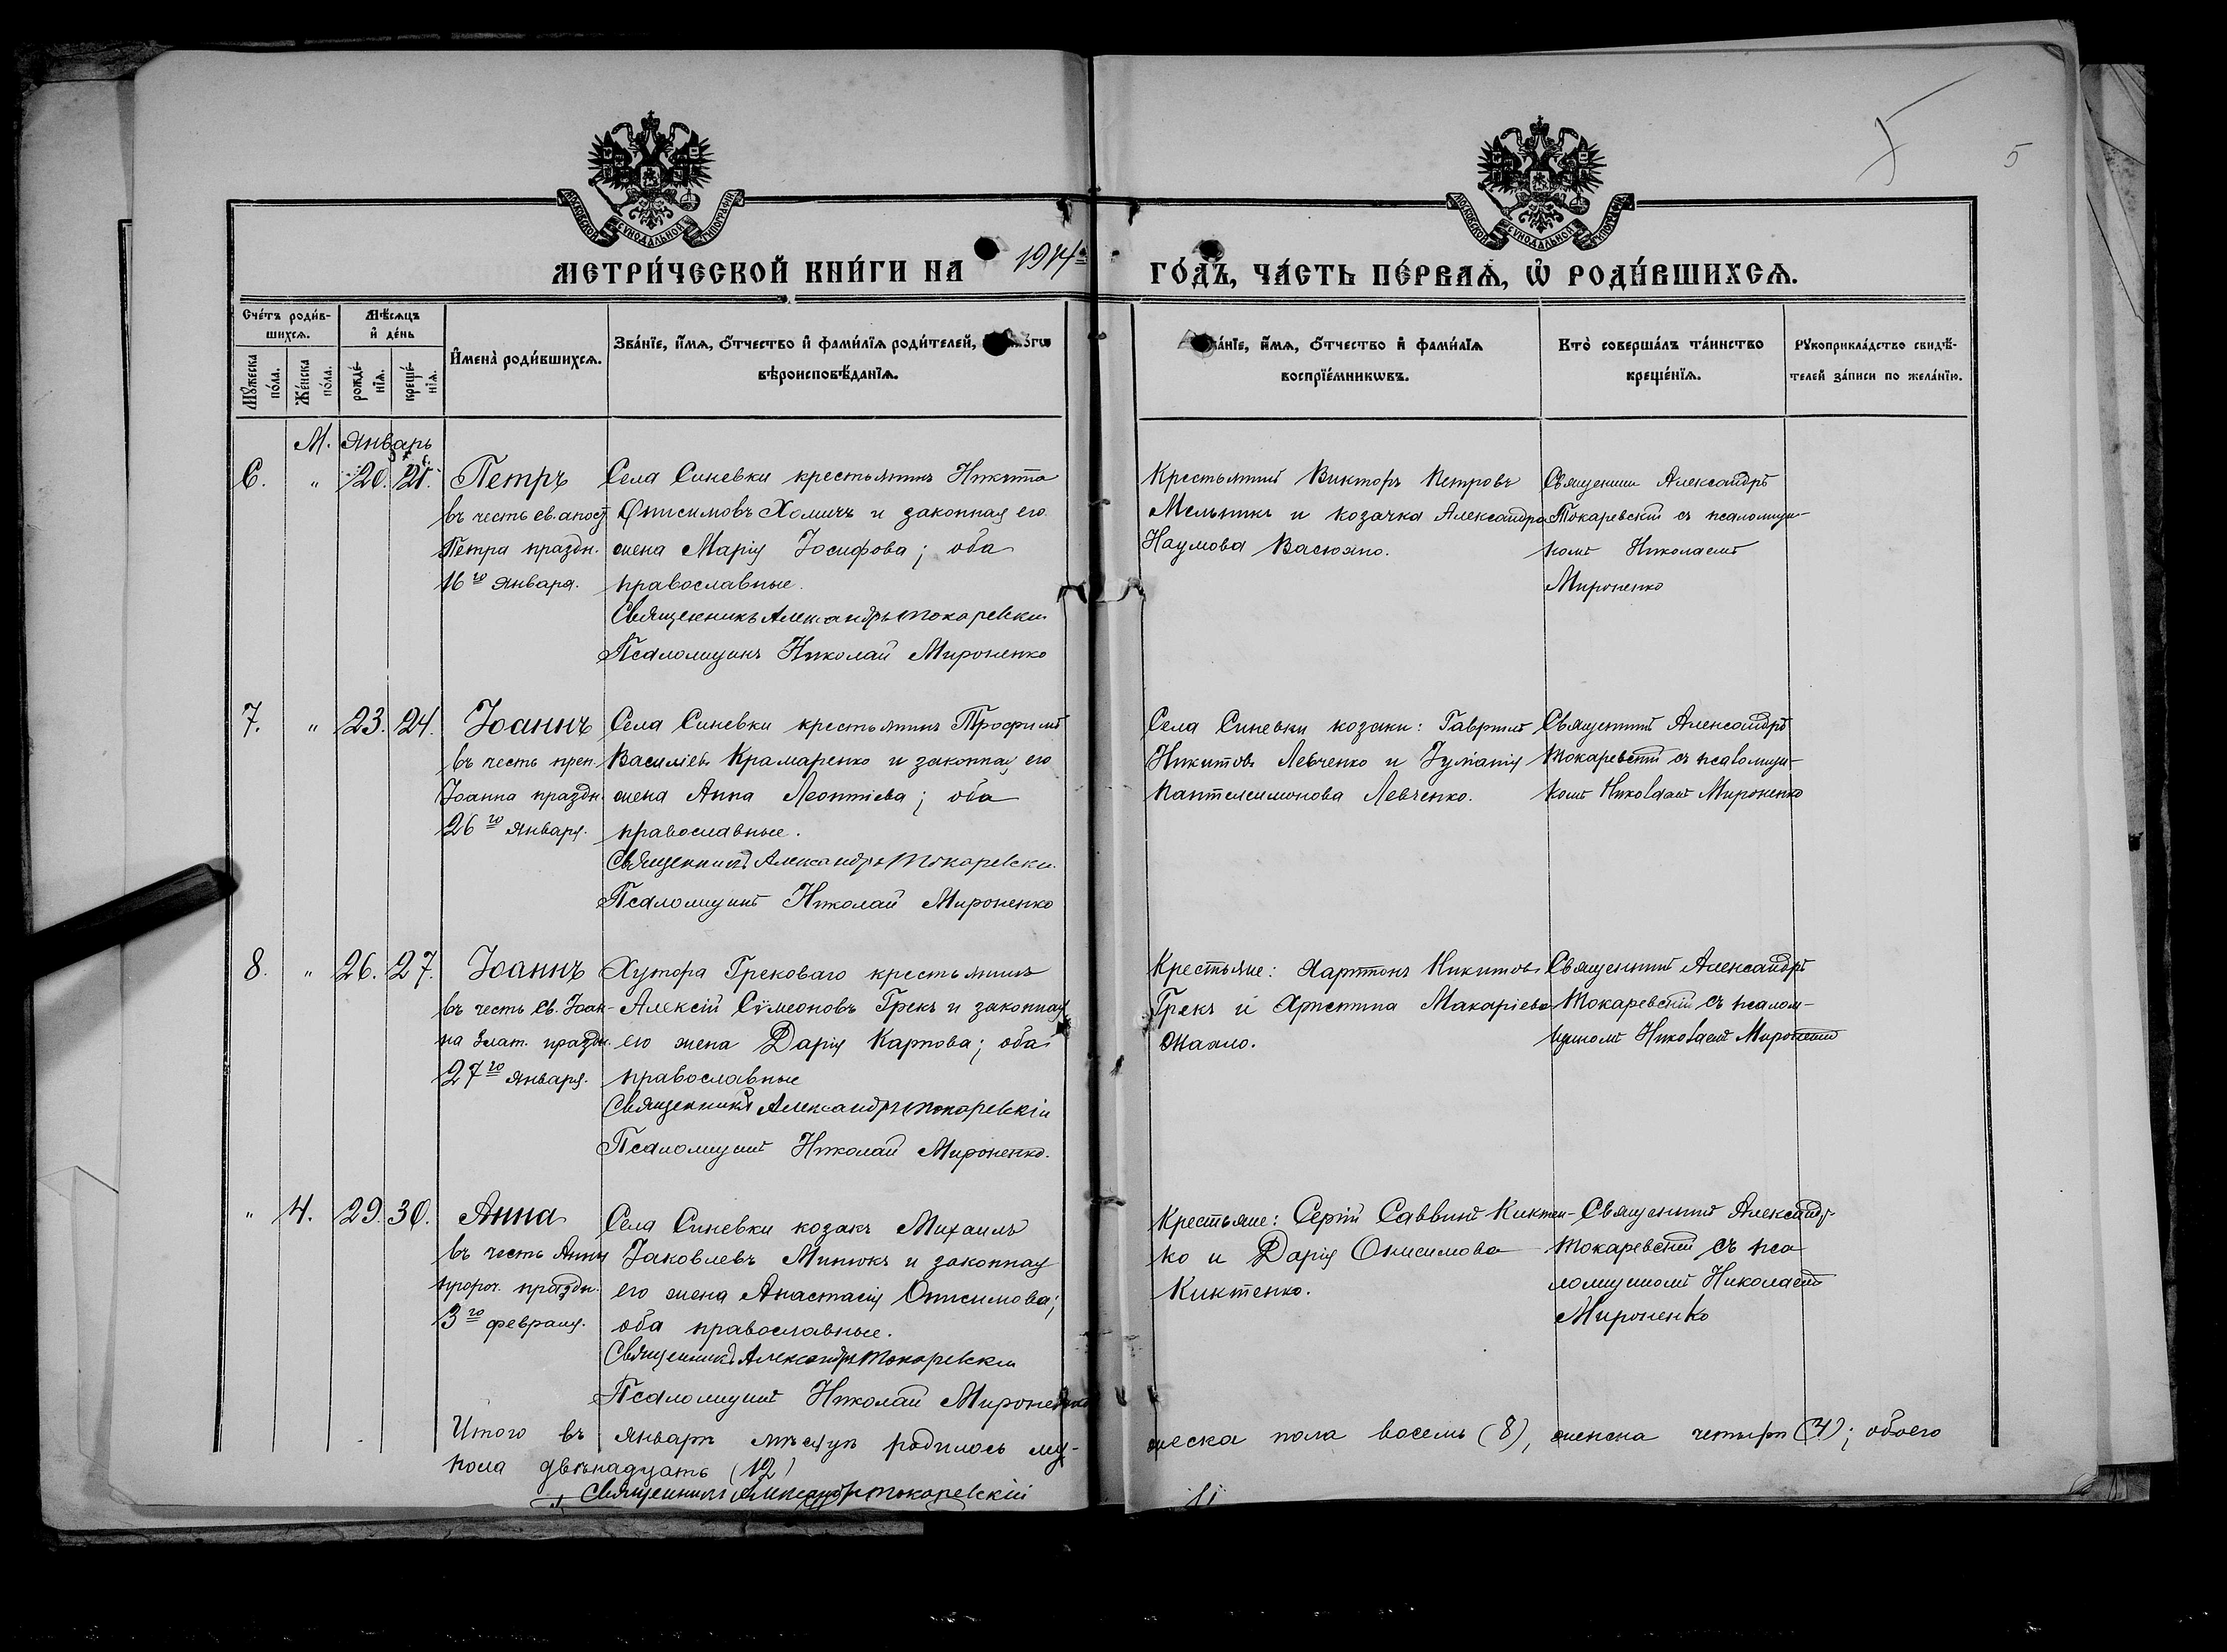 5
МОСКОВСКОЙ СѴНОДАЛЬНОЙ ТИПОГРАФІИ
МОСКОВСКОЙ СѴНОДАЛЬНОЙ ТИПОГРАФІИ
МЕТРИ́ЧЕСКОЙ КНИ́ГИ НА 1914 ГО́ДЪ, ЧА́СТЬ ПЕ́РВАѦ, Ѡ҆ РОДИ́ВШИХСѦ.
Сче́тъ роди́в-
шихсѧ.
Мꙋжеска по́ла.
Же́нска по́ла.
Мѣ́сѧцъ
и҆ де́нь
рожде́-
нїѧ.
креще́-
нїѧ.
И҆мена̀ роди́вшихсѧ.
Зва́нїе, и҆́мѧ, ѻ҆́тчество и҆ фами́лїѧ роди́телей,
вѣроисповѣ́данїѧ.
и҆́мѧ, ѻ҆́тчество и҆ фами́лїѧ
воспрїе́мникѡвъ.
Кто̀ соверша́лъ та́инство
креще́нїѧ.
Рꙋкоприкла́дство свидѣ́-
телей за́писи по жела́нїю.
М. Январь
6. " 20. 21.
Петръ
въ честь св. апост.
Петра праздн.
16го января.
Села Синевки крестьянинъ Никита
Онисимовъ Хомичъ и законная его
жена Марія Іосифова; оба
православные.
Священникъ Александръ Токаревскій
Псаломщикъ Николай Мироненко
Крестьянинъ Викторъ Петровъ
Мельникъ и козачка Александра
Наумова Васюхно.
Священникъ Александръ
Токаревскій съ псаломщи-
комъ Николаемъ
Мироненко
7. " 23. 24.
Іоаннъ
въ честь преп.
Іоанна праздн.
26го января.
Села Синевки крестьянинъ Трофимъ
Василіевъ Крамаренко и законная его
жена Анна Леонтіева; оба
православные.
Священникъ Александръ Токаревскій
Псаломщикъ Николай Мироненко
Села Синевки козаки: Гавріилъ
Никитовъ Левченко и Іуліанія
Пантелеимонова Левченко.
Священникъ Александръ
Токаревскій съ псаломщи-
комъ Николаемъ Мироненко
8. " 26. 27.
Іоаннъ
въ честь св. Іоан-
на Злат. праздн.
27го января.
Хутора Грековаго крестьянинъ
Алексій Сѵмеоновъ Грекъ и законная
его жена Дарія Карпова; оба
православные
Священникъ Александръ Токаревскій
Псаломщикъ Николай Мироненко.
Крестьяне: Харитонъ Никитовъ
Грекъ и Христина Макаріева
Священникъ Александръ
Токаревскій съ псалом-
щикомъ Николаемъ Мироненко
" 4. 29. 30.
Анна
въ честь Анны
пророч. праздн.
3го февраля.
Села Синевки козакъ Михаилъ
Іаковлевъ Минюкъ и законная
его жена Анастасія Онисимова;
оба православные.
Священникъ Александръ Токаревскій
Псаломщикъ Николай Мироненко
Крестьяне: Сергій Саввинъ Киктен-
ко и Дарія Онисимова
Киктенко.
Священникъ Александръ
Токаревскій съ пса
ломщикомъ Николаемъ
Мироненко
Итого въ январѣ мѣсяцѣ родилось му-
жеска пола восемь (8), женска четыре (4); обоего
пола двѣнадцать (12)
Священникъ Александръ Токаревскій